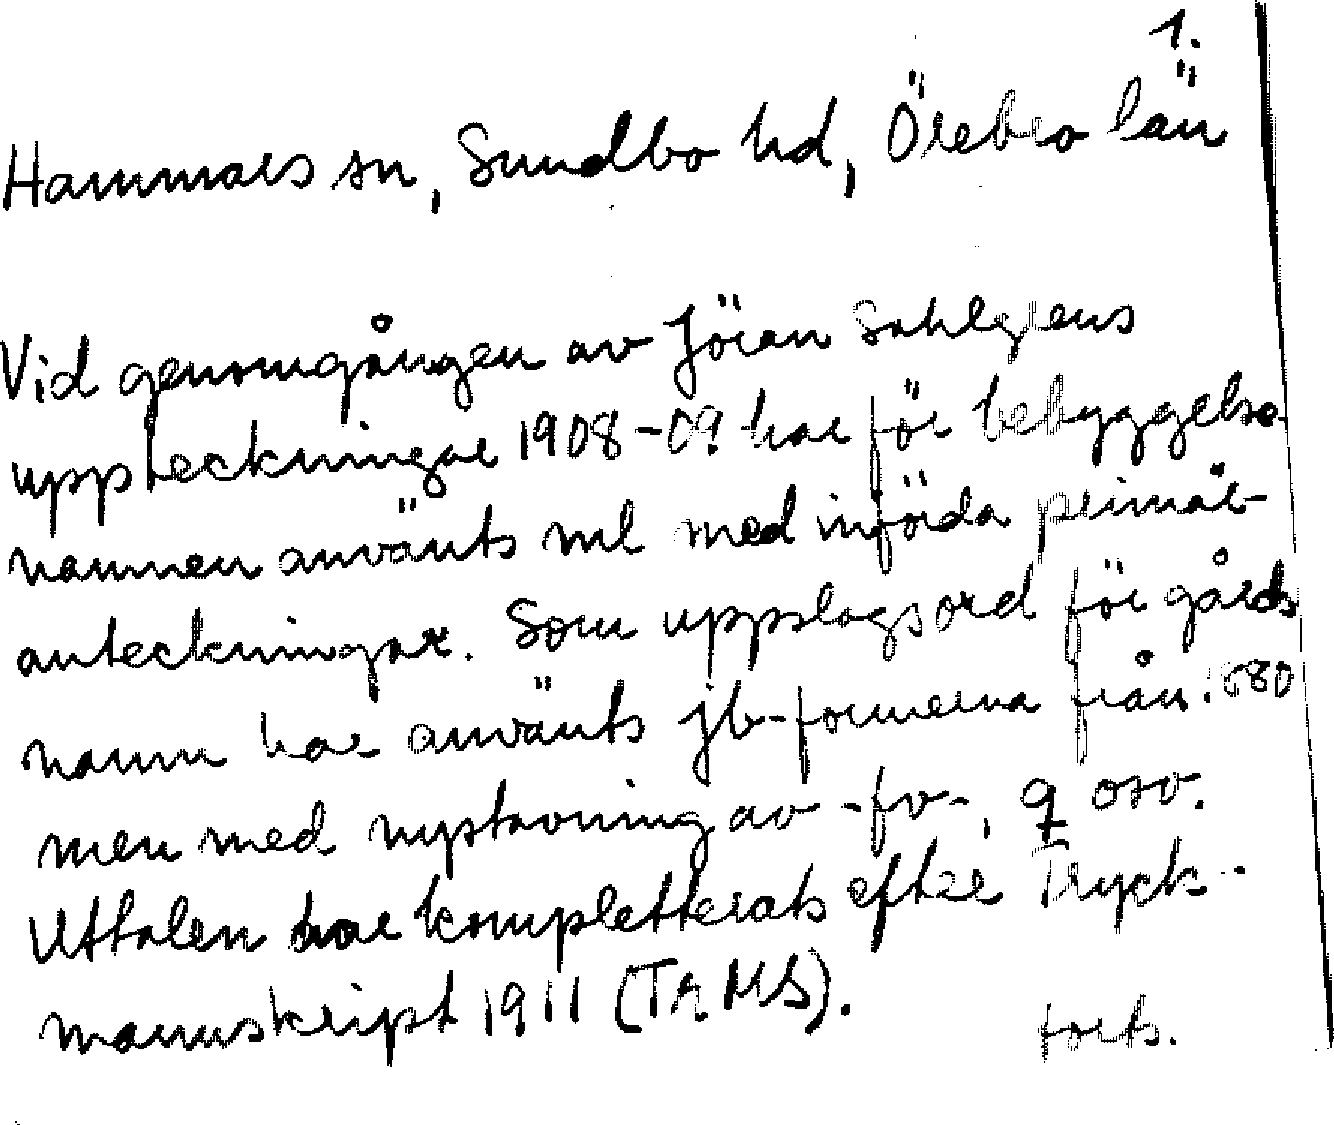 1.
Hammars sn, Sundbo hd, Örebro län
Vid genomgången av Jöran Sahlgrens
uppteckningar 1908-09 har för bebyggelse-
namnen använts ml med införda primär-
anteckningar. Som uppslagsord för gårds
namn har använts jb-formerna från 1880
men med nystavning av -fv-, q osv.
Uttalen har kompletterats efter Tryck-
manuskript 1911 (Tr MS).
forts.